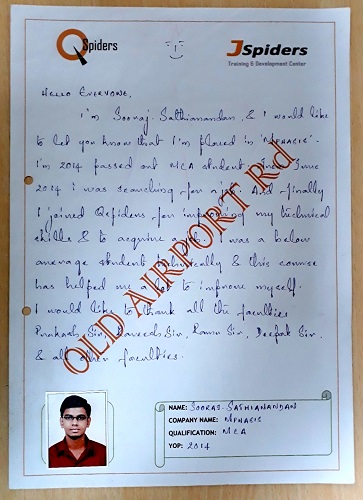 QSpiders
JSpiders
Training & Development Center
HELLO EVERYONE,
I'm Sooraj Sathianandan, & I would like
to let you know that I'm placed in 'MPHASIS'.
I'm 2014 passed out MCA student. Since June
2014 I was searching for a job. And finally
I joined Qspiders for improving my technical
skills & to acquire a job. I was a below
average student technically & this course
has helped me a lot to improve myself.
I would like to thank all the faculties
Prakash Sir, Sir, Ramu Sir, Deepak Sir,
& all other faculties.
OLD AIRPORT Rd
NAME: SOORAJ SATHIANANDAN
COMPANY NAME: MPHASIS
QUALIFICATION: MCA
YOP: 2014